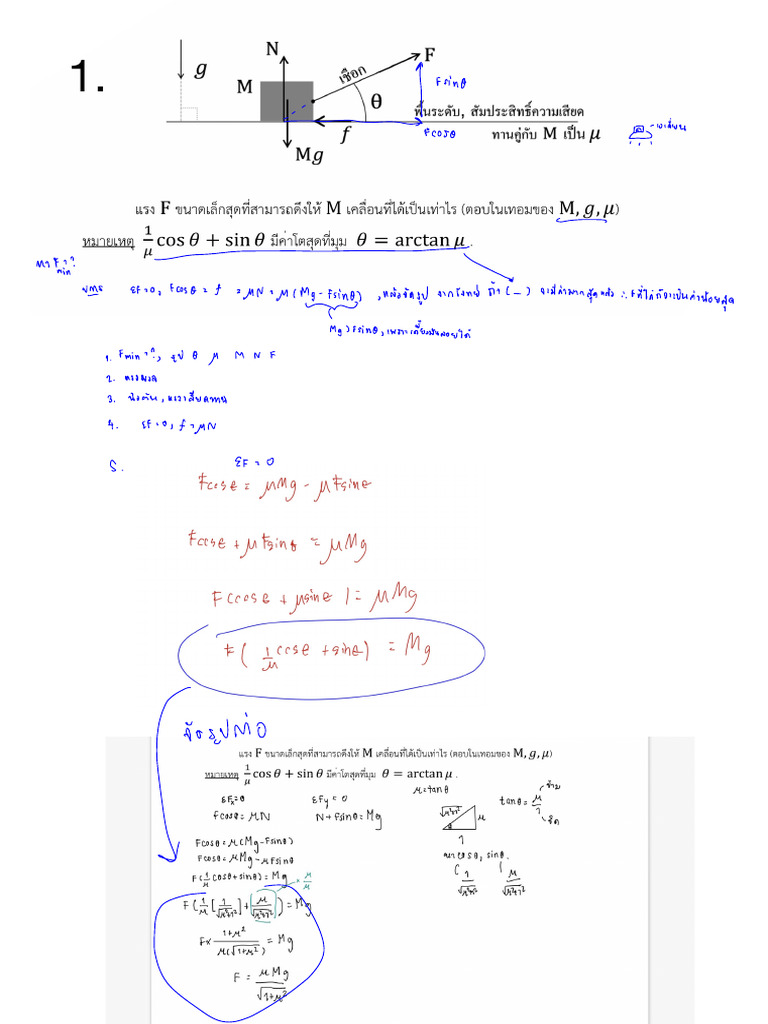 1.
g
N
M
เชือก
F
θ
F sinθ
f
Mg
F cosθ
พื้นระดับ, สัมประสิทธิ์ความเสียด
ทานคู่กับ M เป็น μ
แรง F ขนาดเล็กสุดที่สามารถดึงให้ M เคลื่อนที่ได้เป็นเท่าไร (ตอบในเทอมของ M, g, μ)
หมายเหตุ 1/μ cos θ + sin θ มีค่าโตสุดที่มุม θ = arctan μ .
หา F = ?
min
ΣF=0, Fcosθ = f = μN = μ(Mg - Fsinθ)
Mg > Fsinθ,
1. Fmin = ?, รูป θ μ M N F
2.
3.
4. ΣF=0, f = μN
5. ΣF = 0
Fcosθ = μMg - μFsinθ
Fcosθ + μFsinθ = μMg
F(cosθ + μsinθ) = μMg
F( 1/μ cosθ + sinθ) = Mg
จัดรูปต่อ
แรง F ขนาดเล็กสุดที่สามารถดึงให้ M เคลื่อนที่ได้เป็นเท่าไร (ตอบในเทอมของ M, g, μ)
หมายเหตุ 1/μ cos θ + sin θ มีค่าโตสุดที่มุม θ = arctan μ .
μ = tanθ
ΣFx=0 ΣFy=0
Fcosθ = μN N + Fsinθ = Mg
√μ²+1² μ θ 1
tanθ = μ/1 ข้าม ชิด
Fcosθ = μ(Mg - Fsinθ)
Fcosθ = μMg - μFsinθ
หา cosθ, sinθ.
F(1/μ cosθ + sinθ) = Mg
1/√μ²+1² μ/√μ²+1²
× μ/μ
F(1/μ [1/√μ²+1²] + [μ/√μ²+1²]) = Mg
F× 1+μ²/μ(√1+μ²) = Mg
F = μMg/√1+μ²